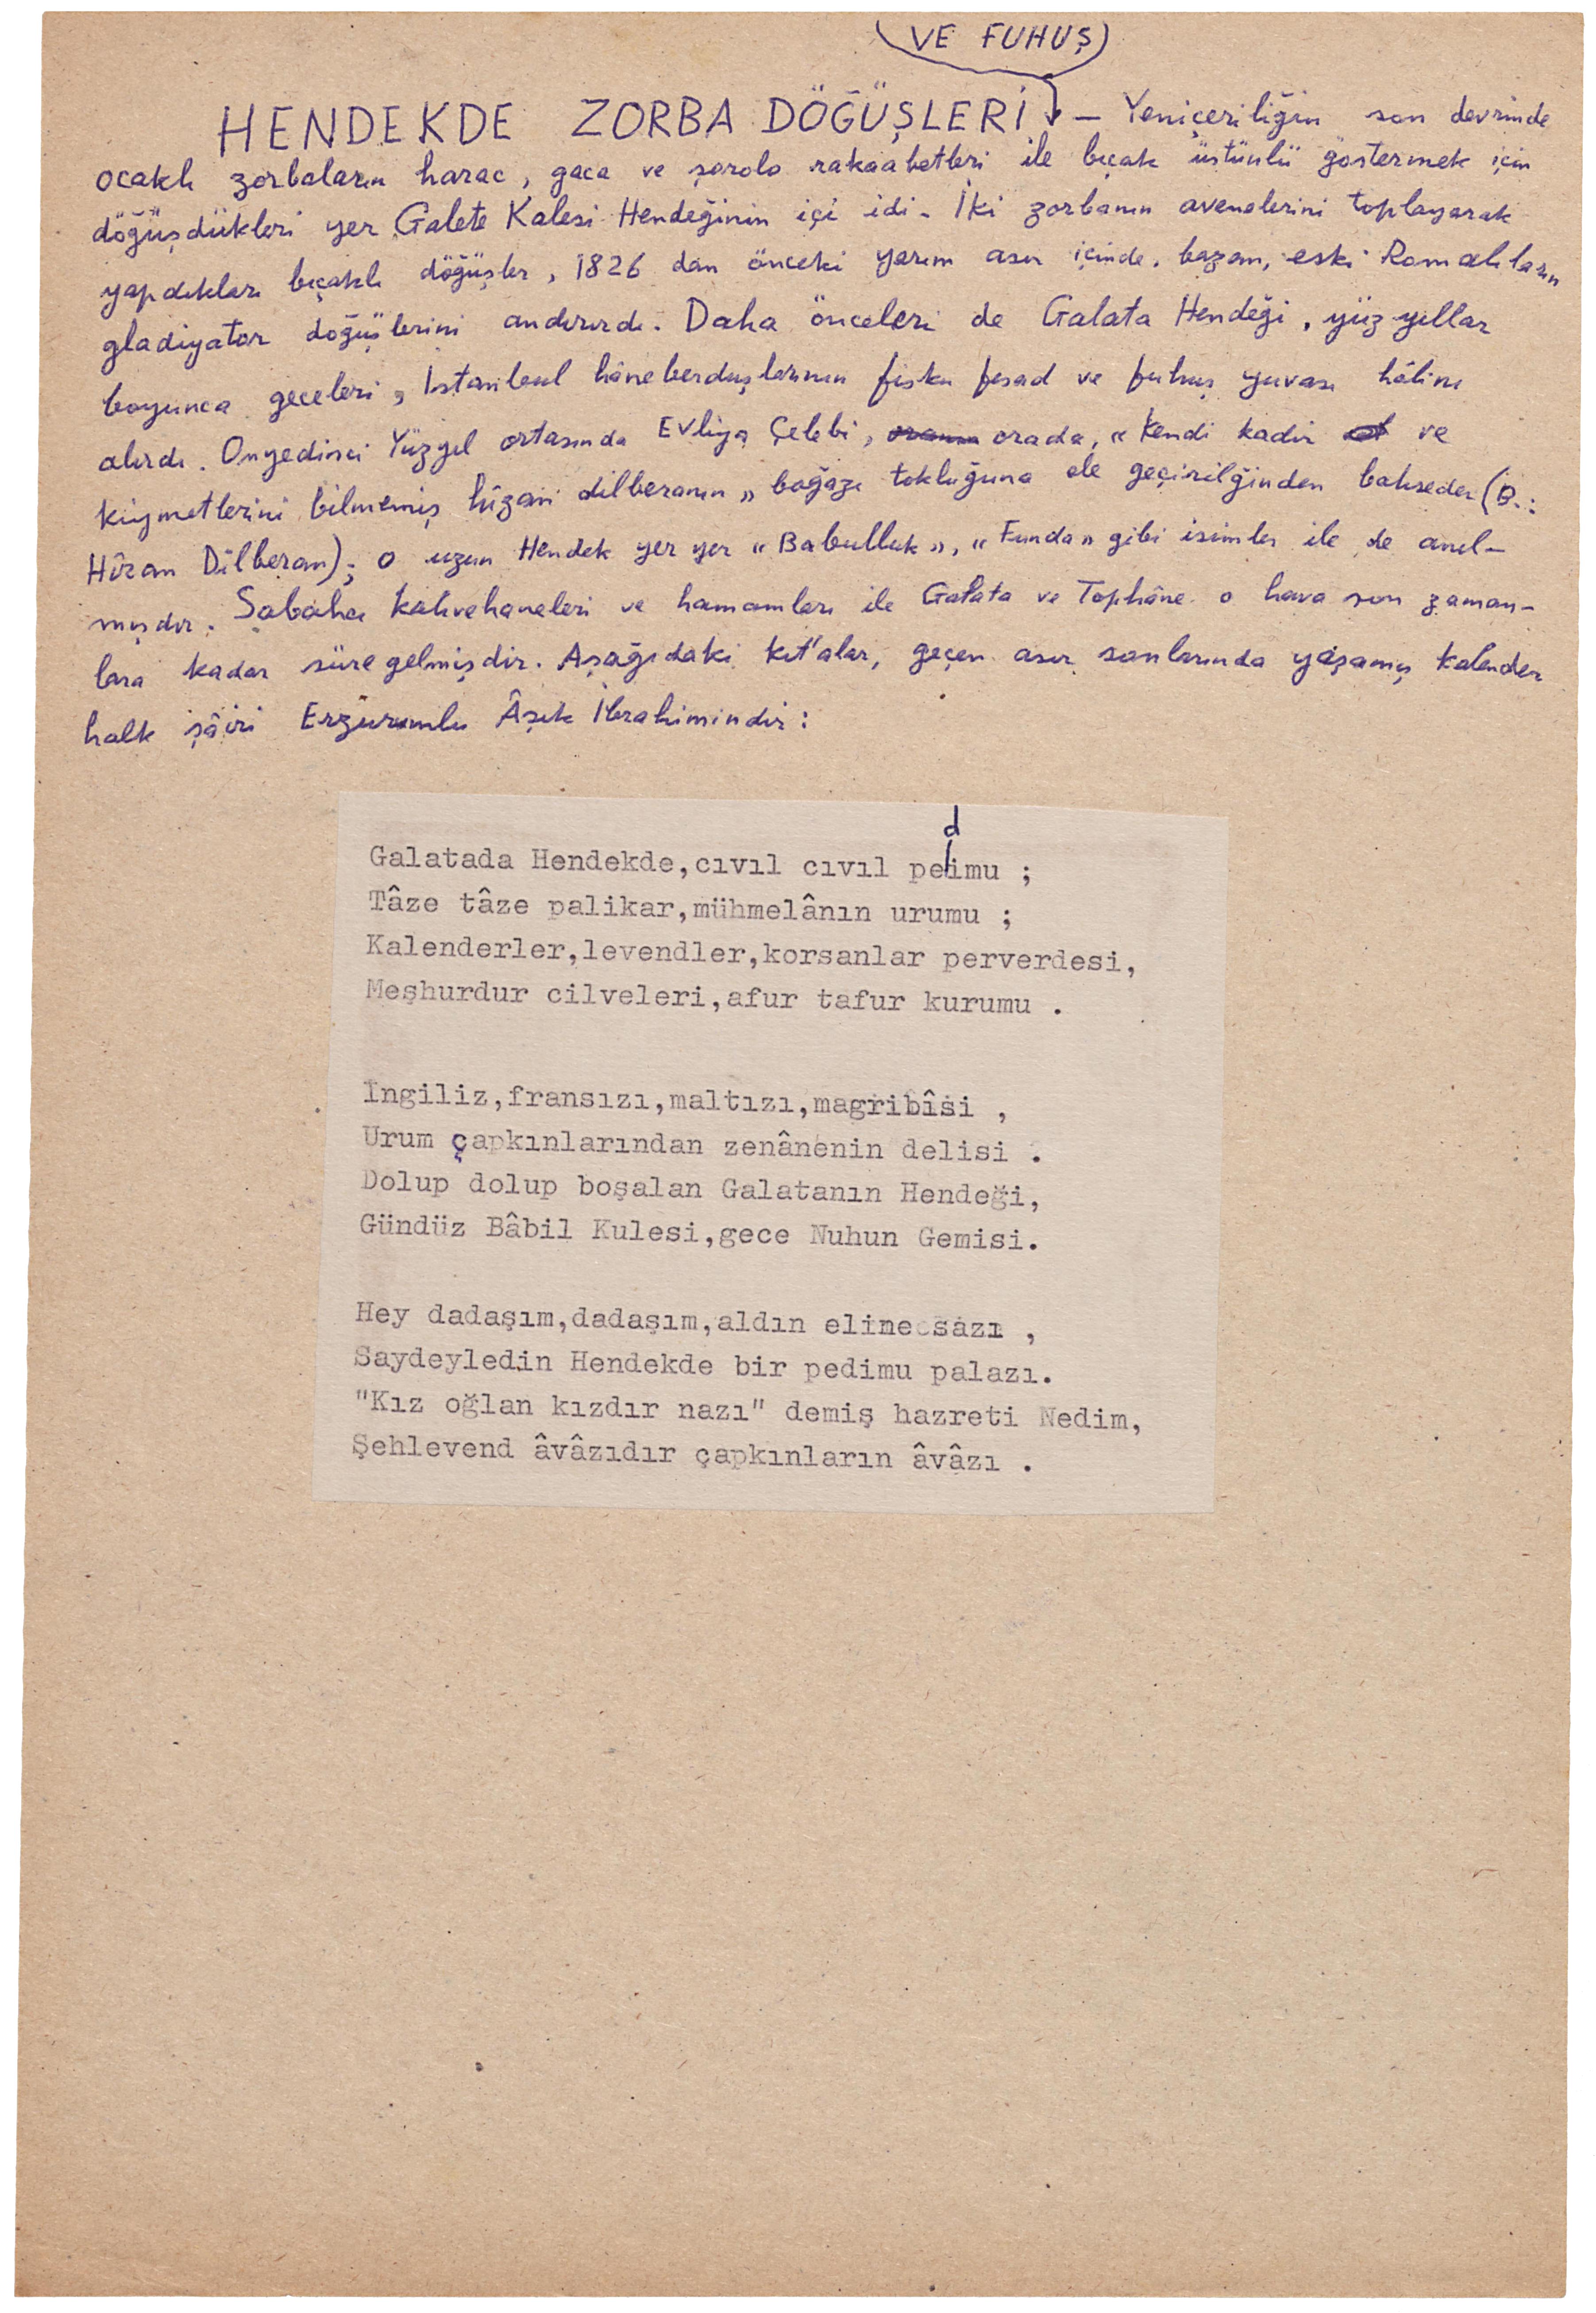 VE FUHUŞ
HENDEKDE ZORBA DÖĞÜŞLERİ — Yeniçeriliğin son devrinde
ocaklı zorbaların harac, gaca ve şorolo rakaabetleri ile bıçak üstünlü göstermek için
döğüşdükleri yer Galata Kalesi Hendeğinin içi idi. İki zorbanın avenelerini toplayarak
yapdıkları bıçaklı döğüşler, 1826 dan önceki yarım asır içinde, bazan, eski Romalıların
gladiyatör döğüşlerini andırırdı. Daha önceleri de Galata Hendeği, yüzyıllar
boyunca geceleri, İstanbul hâneberduşlarının fısku fesad ve fuhuş yuvası hâlini
alırdı. Onyedinci Yüzyıl ortasında Evliya Çelebi, orada, «Kendi kadir ve
kıymetlerini bilmemiş hîzan dilberanın» boğazı tokluğuna ele geçirilğinden bahseder (B.:
Hîzan Dilberan); o uzun Hendek yer yer «Babulluk», «Funda» gibi isimler ile de anıl-
mışdır. Sabahcı kahvehaneleri ve hamamları ile Galata ve Tophâne o hava son zaman-
lara kadar süre gelmişdir. Aşağıdaki kıt'alar, geçen asır sonlarında yaşamış kalender
halk şâiri Erzurumlu Âşık İbrahimindir:
d
Galatada Hendekde,cıvıl cıvıl pedimu ;
Tâze tâze palikar,mühmelânın urumu ;
Kalenderler,levendler,korsanlar perverdesi,
Meşhurdur cilveleri,afur tafur kurumu .
İngiliz,fransızı,maltızı,magribîsi ,
Urum çapkınlarından zenânenin delisi .
Dolup dolup boşalan Galatanın Hendeği,
Gündüz Bâbil Kulesi,gece Nuhun Gemisi.
Hey dadaşım,dadaşım,aldın eline sazı ,
Saydeyledin Hendekde bir pedimu palazı.
"Kız oğlan kızdır nazı" demiş hazreti Nedim,
Şehlevend âvâzıdır çapkınların âvâzı .